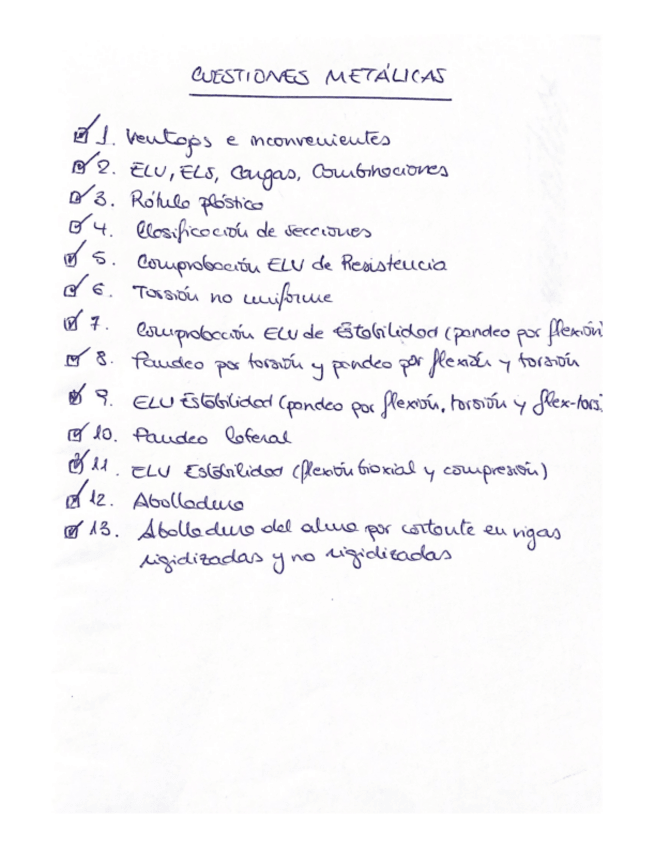 CUESTIONES METÁLICAS
1. Ventajas e inconvenientes
2. ELU, ELS, Cargas, Combinaciones
3. Rótula plástica
4. Clasificación de secciones
5. Comprobación ELU de Resistencia
6. Torsión no uniforme
7. Comprobación ELU de Estabilidad (pandeo por flexión)
8. Pandeo por torsión y pandeo por flexión y torsión
9. ELU Estabilidad (pandeo por flexión, torsión y flex-tors.
10. Pandeo lateral
11. ELU Estabilidad (flexión biaxial y compresión)
12. Abolladura
13. Abolladura del alma por cortante en vigas
rigidizadas y no rigidizadas